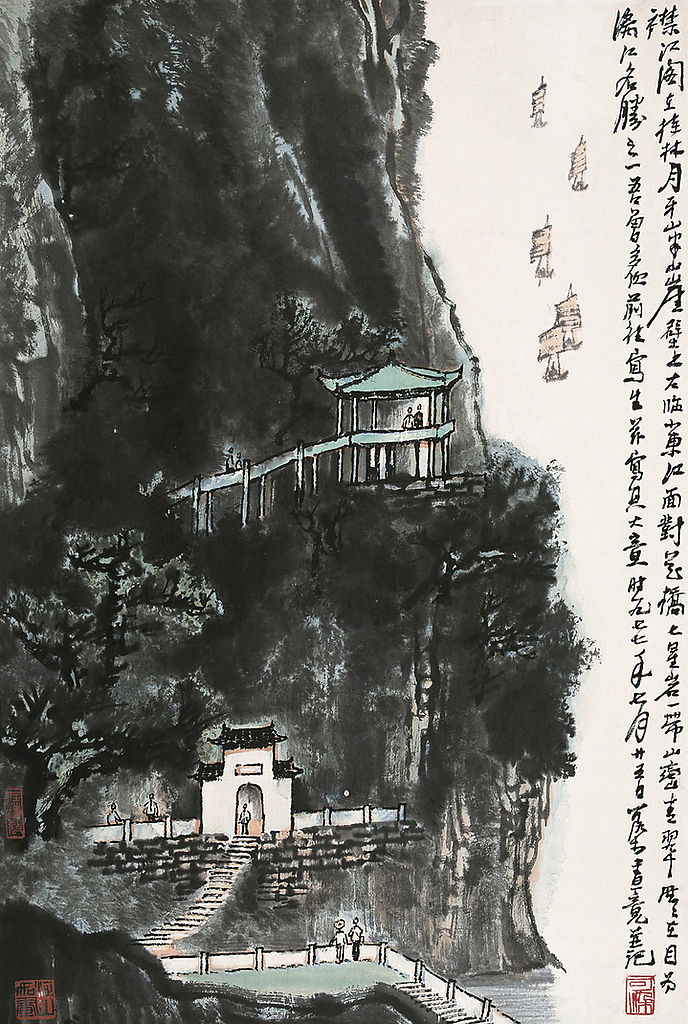 襟江阁在桂林月牙山半山崖壁上左临小東江面對花橋七星岩一帶山巒青翠歷歷在目为
漓江名勝之一吾曾多次前往寫生并寫其大意时一九七七年七月廿五日竟并记